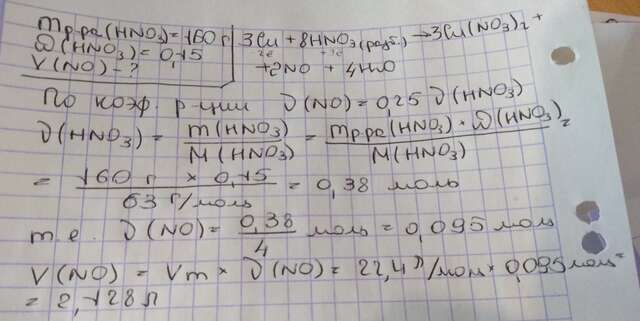 m р-ра (HNO3) = 160 г | 3Cu + 8HNO3 (разб.) → 3Cu(NO3)2 +
ω (HNO3) = 0,15 | +2NO + 4H2O
V(NO) - ?
По коэф. р-ции ν(NO) = 0,25 ν(HNO3)
ν(HNO3) = m(HNO3) / M(HNO3) = m р-ра (HNO3) · ω(HNO3) / M(HNO3) =
= 160 г × 0,15 / 63 г/моль = 0,38 моль
т.е. ν(NO) = 0,38 / 4 моль = 0,095 моль
V(NO) = Vm × ν(NO) = 22,4 л/моль × 0,095 моль =
= 2,128 л